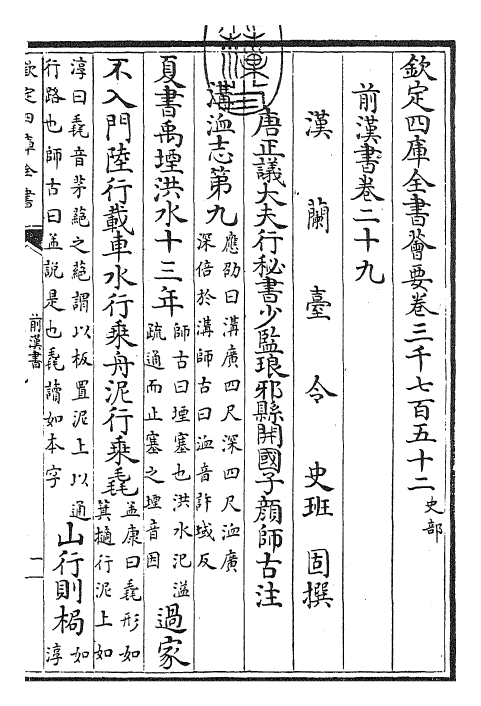 欽定四庫全書薈要卷三千七百五十二 史部
前漢書卷二十九
漢蘭臺令史班固撰
唐正議大夫行秘書少監琅邪縣開國子顔師古注
溝洫志第九 應劭曰溝廣四尺深四尺洫廣深倍於溝師古曰洫音許域反
夏書禹堙洪水十三年 師古曰堙塞也洪水氾溢疏通而止塞之堙音因 過家
不入門陸行載車水行乘舟泥行乘毳 孟康曰毳形如箕擿行泥上如
淳曰毳音茅蕝之蕝謂以板置泥上以通行路也師古曰孟說是也毳讀如本字 山行則梮 如淳
欽定四庫全書
前漢書
一